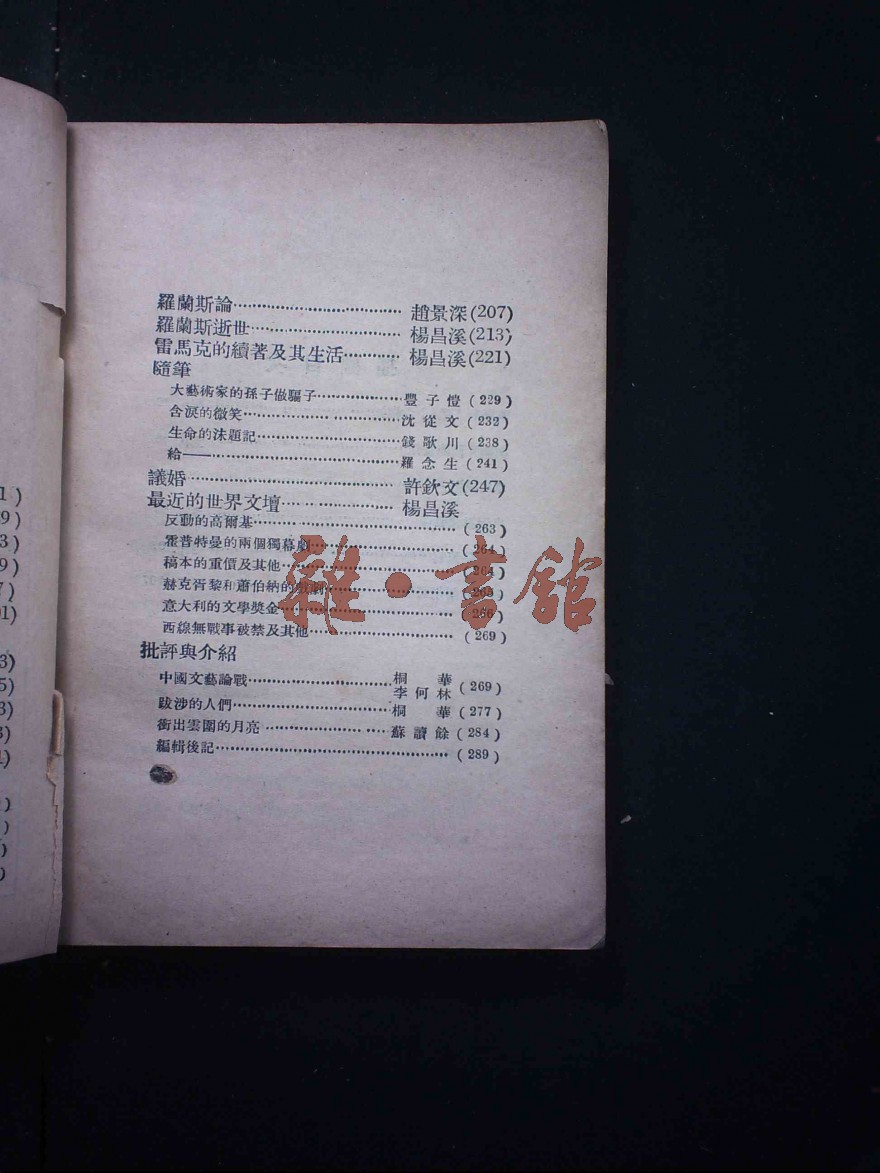 羅蘭斯論……………………………趙景深(207)
羅蘭斯逝世…………………………楊昌溪(213)
雷馬克的續著及其生活…………楊昌溪(221)
隨筆
大藝術家的孫子做騙子……………………豐子愷(229)
含淚的微笑……………………………沈從文(232)
生命的沫題記……………………………錢歌川(238)
給——……………………………………羅念生(241)
議婚……………………………………許欽文(247)
最近的世界文壇……………………楊昌溪
反動的高爾基……………………………(263)
霍普特曼的兩個獨幕劇……………………(264)
稿本的重價及其他……………………………(264)
赫克胥黎和蕭伯納的戲劇……………………(265)
意大利的文學獎金……………………………(266)
西線無戰事被禁及其他……………………(269)
批評與介紹
中國文藝論戰……………………桐華 李何林(269)
跋涉的人們……………………………桐華(277)
衝出雲圍的月亮……………………………蘇讀餘(284)
編輯後記……………………………………(289)
雜·書館
1)
9)
3)
9)
7)
01)
3)
5)
3)
3)
1)
)
)
)
)